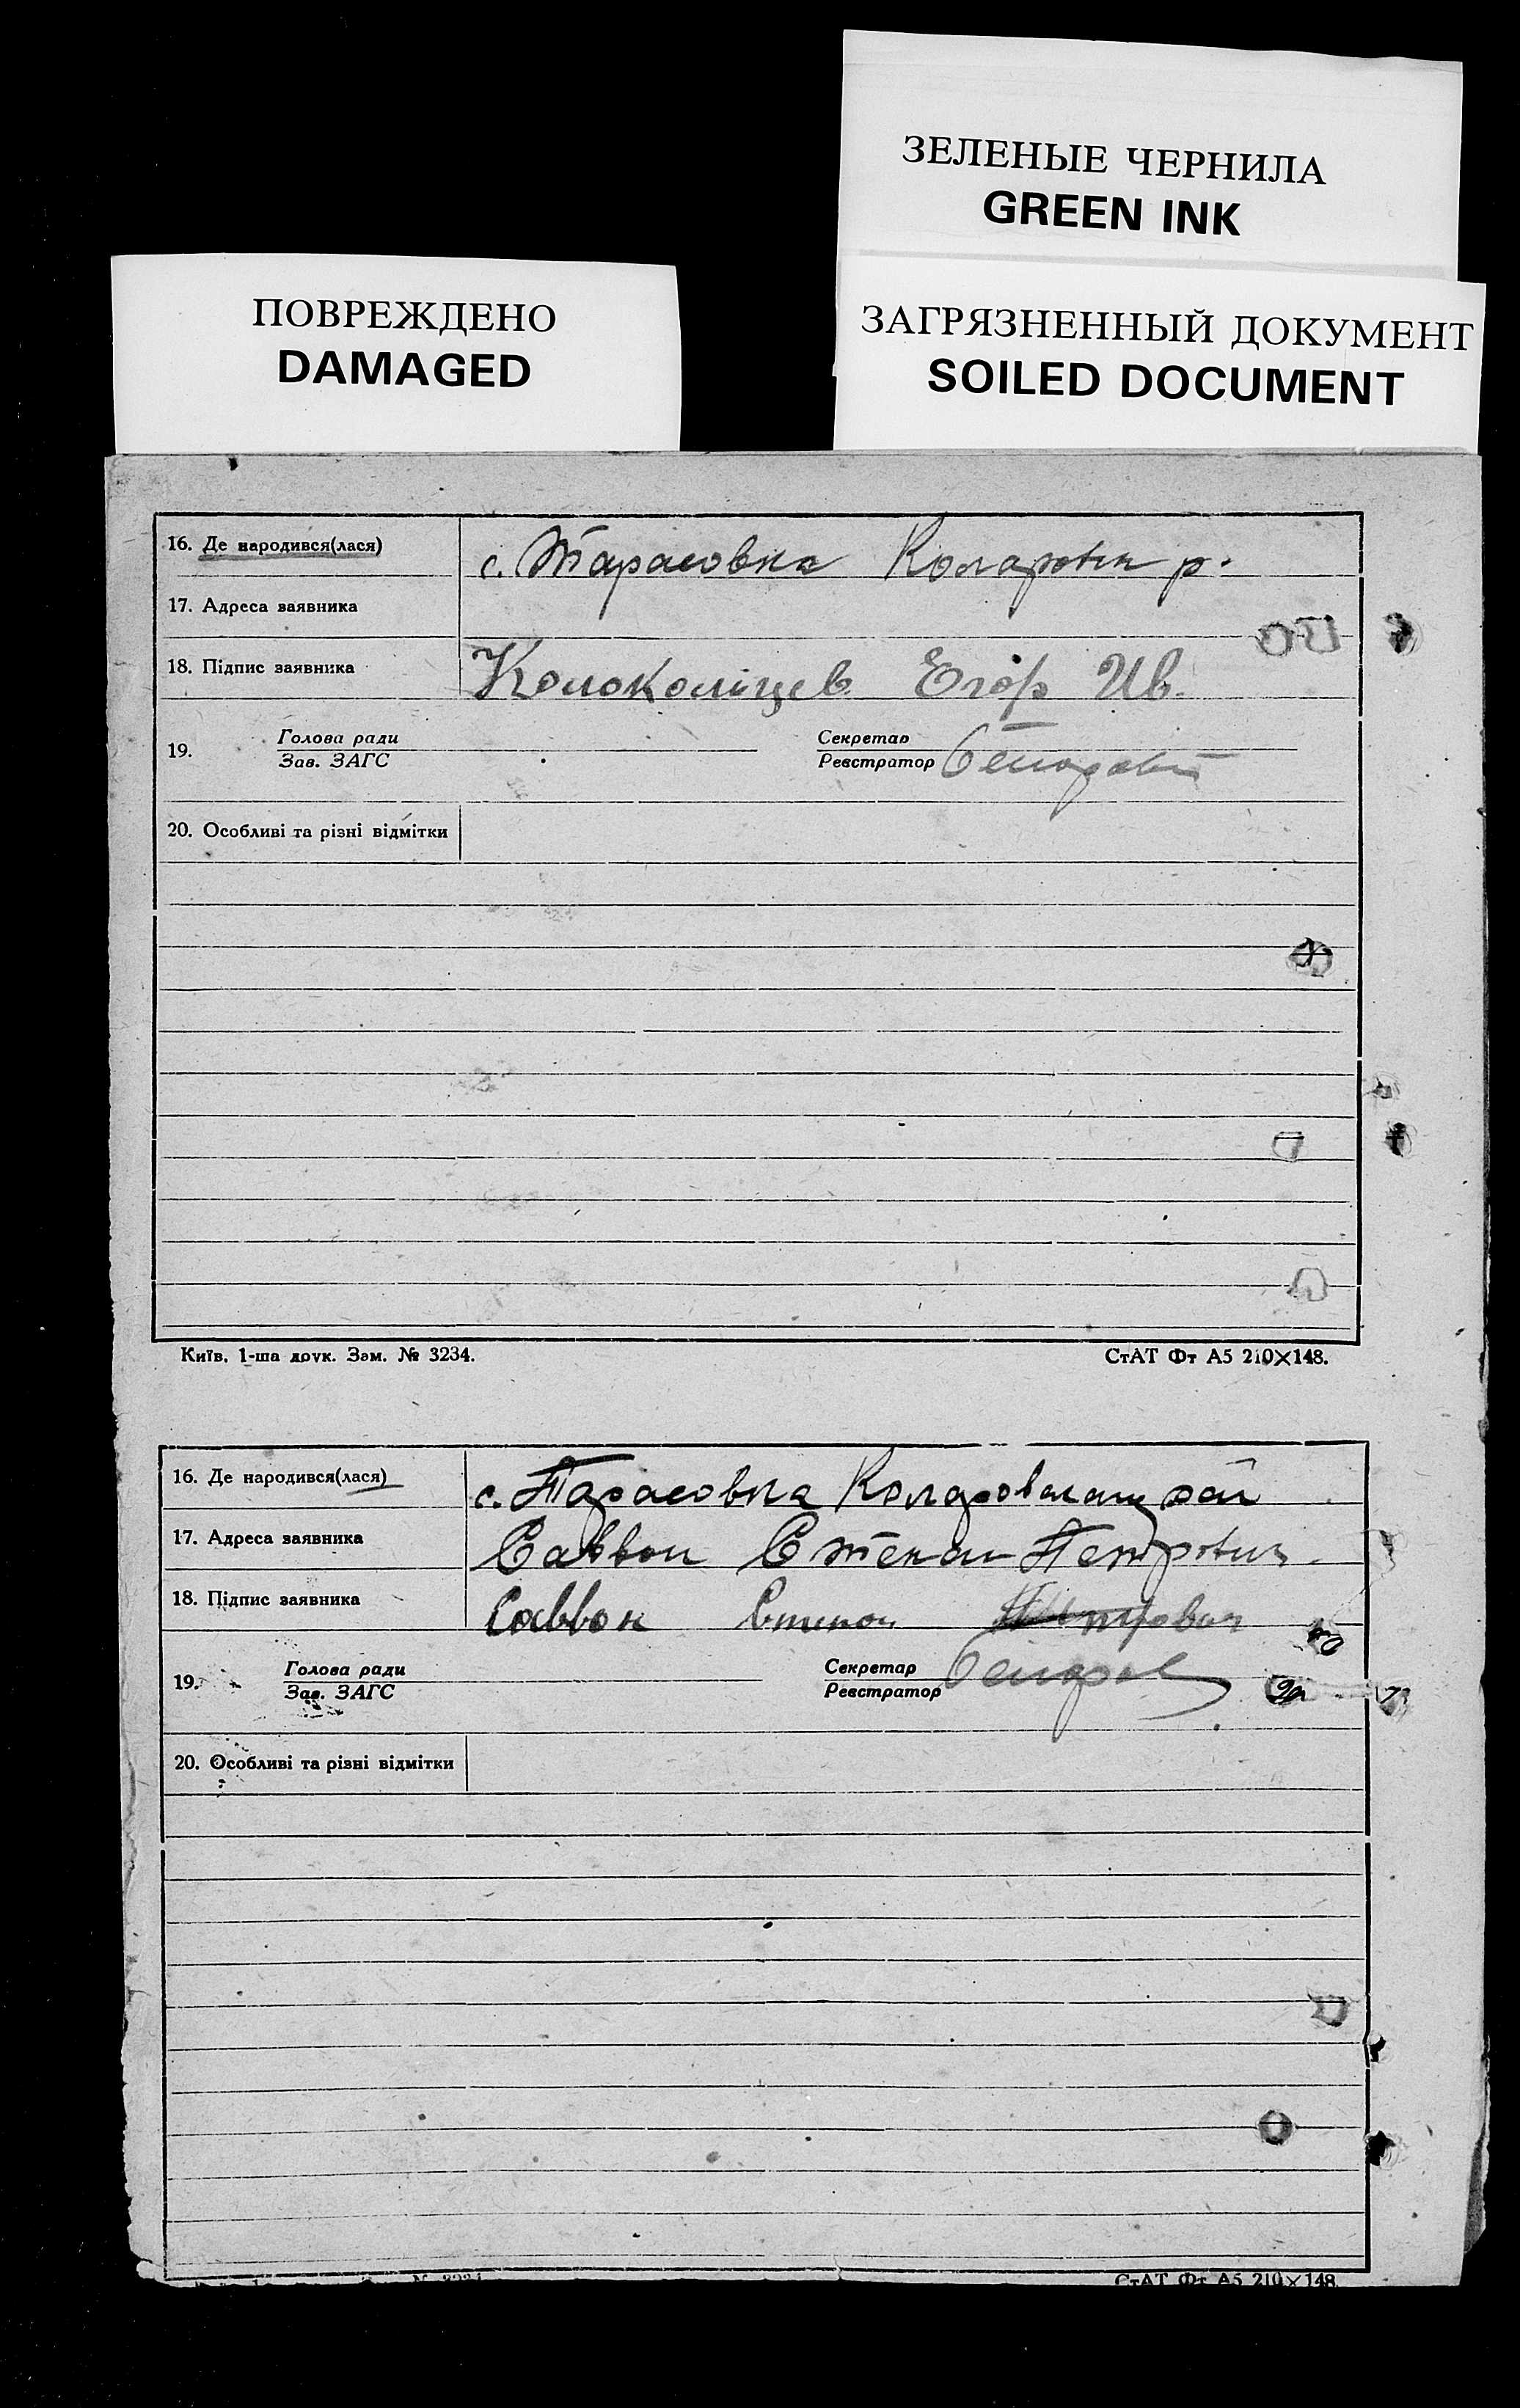 ЗЕЛЕНЫЕ ЧЕРНИЛА
GREEN INK
ПОВРЕЖДЕНО
DAMAGED
ЗАГРЯЗНЕННЫЙ ДОКУМЕНТ
SOILED DOCUMENT
16. Де народився(лася) с. Тарасовка р.
17. Адреса заявника
18. Підпис заявника Колокольцев Егор Ив.
19. Голова ради Секретар
Зав. ЗАГС Реєстратор
20. Особливі та різні відмітки
Київ, 1-ша друк. Зам. № 3234. СтАТ Фт А5 210×148.
16. Де народився(лася) с. Тарасовка рай
17. Адреса заявника Саввон Степан Петрович
18. Підпис заявника Саввон Степан
19. Голова ради Секретар
Зав. ЗАГС Реєстратор
20. Особливі та різні відмітки
СтАТ Фт А5 210×148.